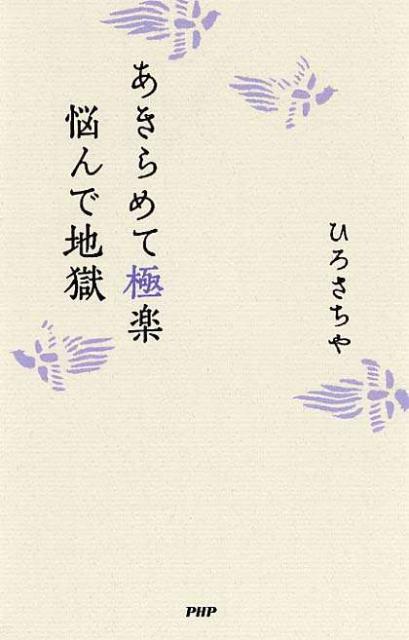 ひろさちや
あきらめて極楽
悩んで地獄
PHP